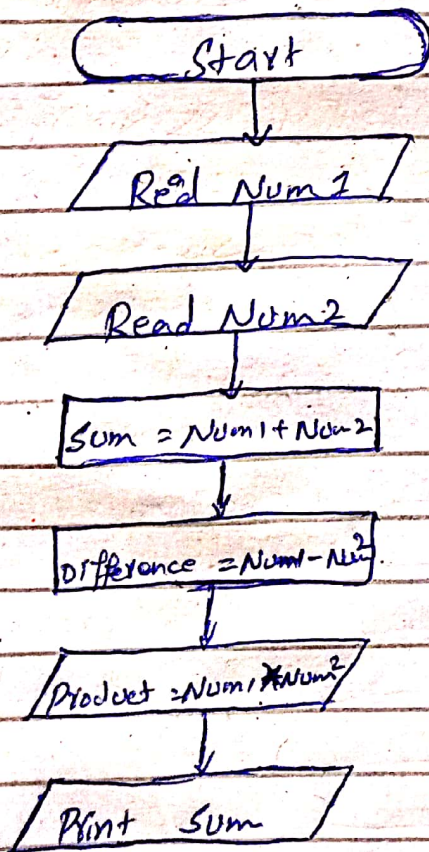 Start
Read Num1
Read Num2
Sum = Num1 + Num2
Difference = Num1 - Nu2
Product = Num1 * Num2
Print Sum